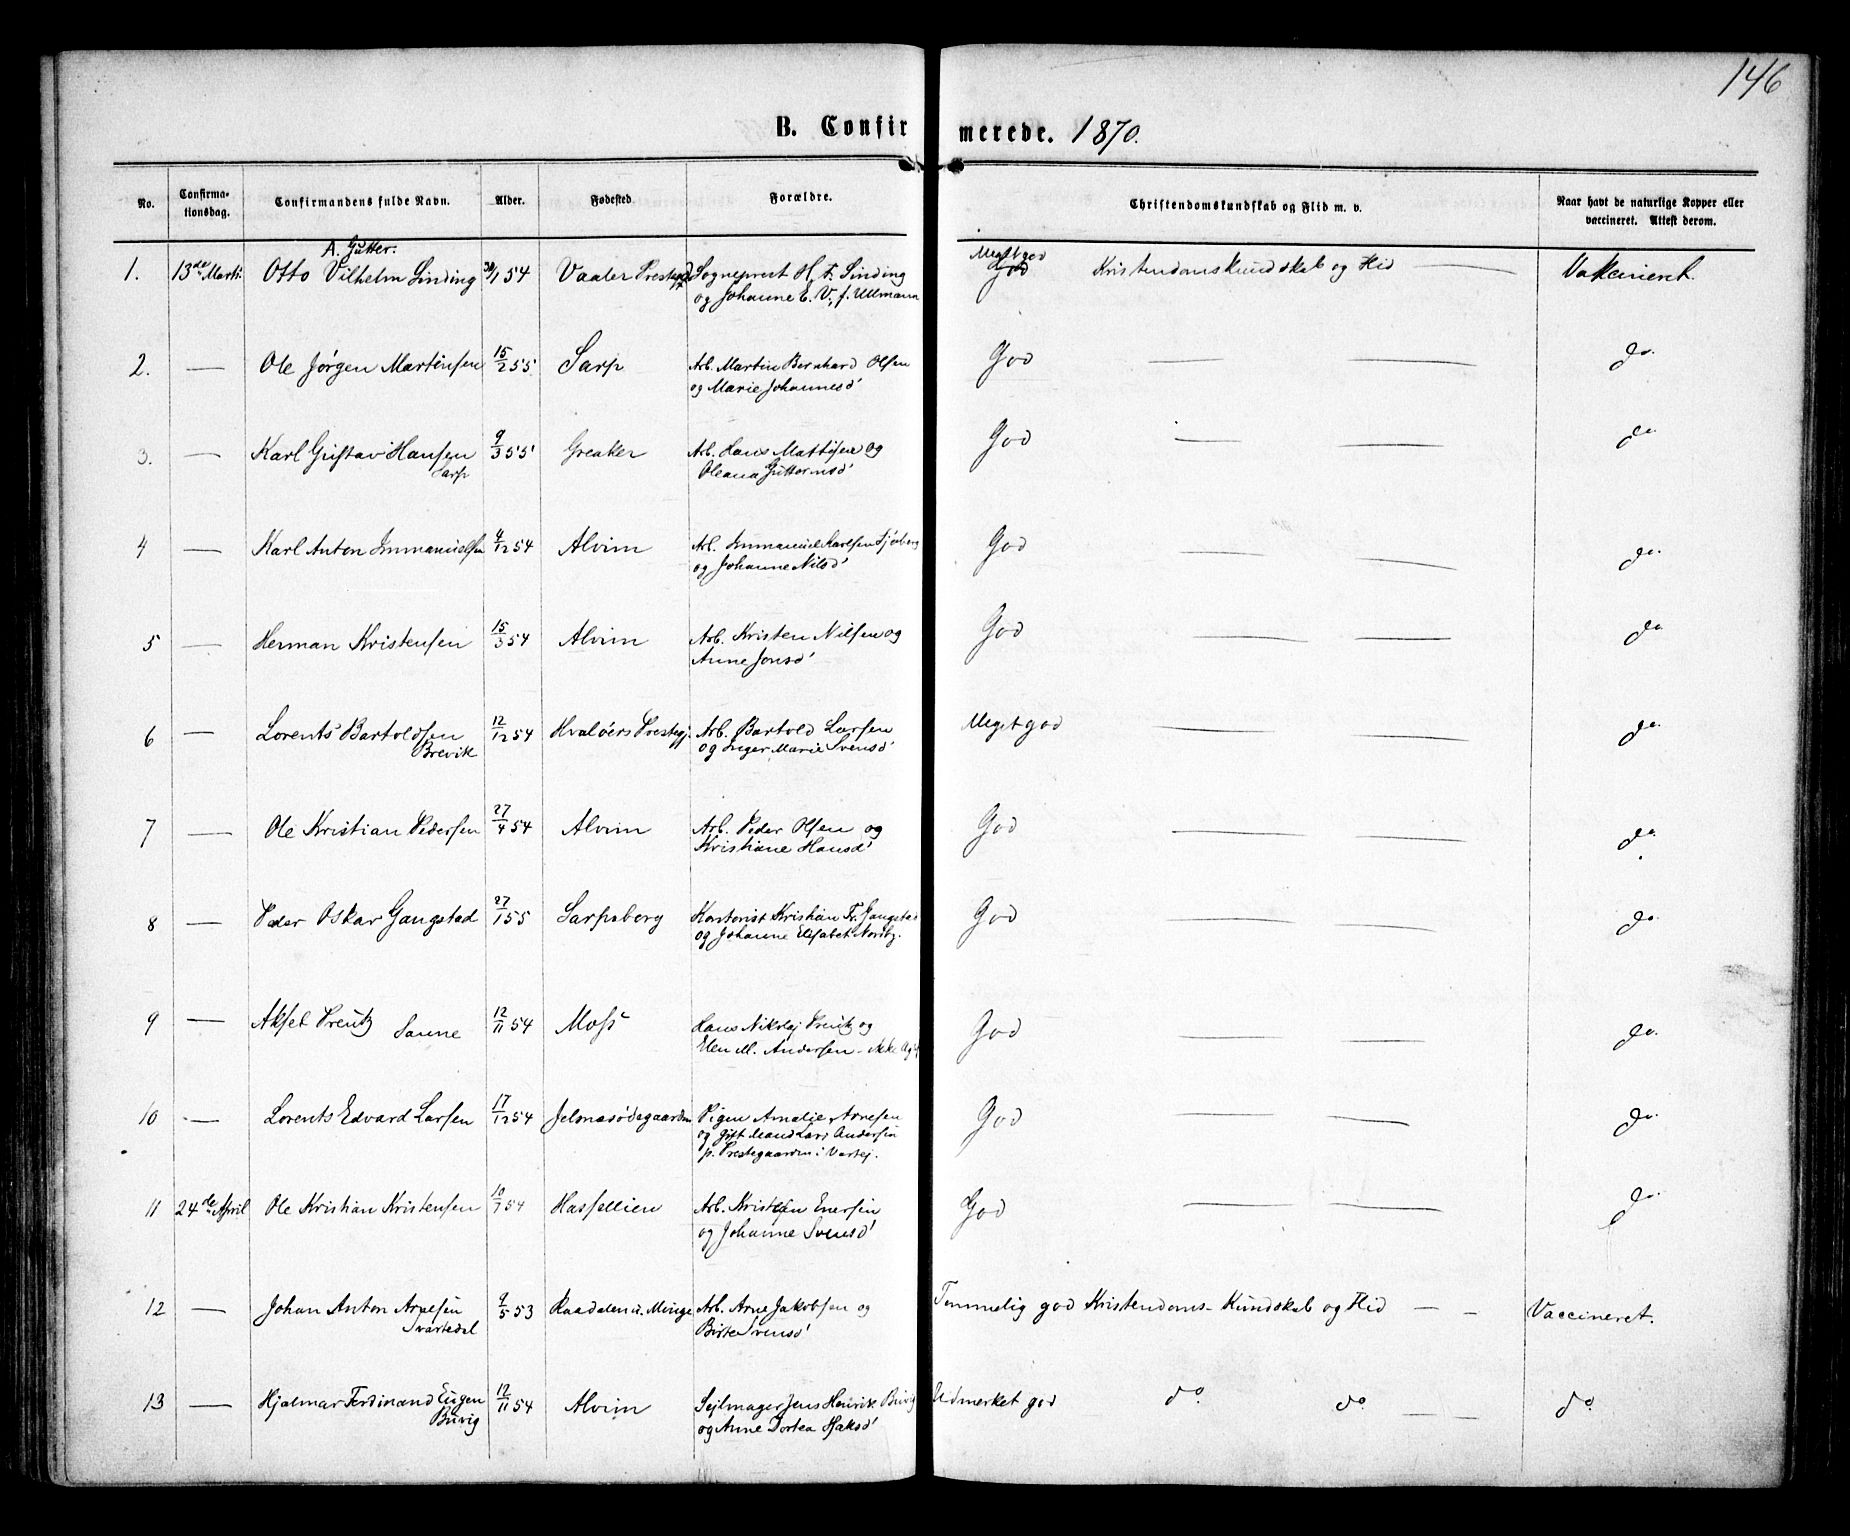 146
B. Confirmerede. 1870.
No. Confirmationsdag. Confirmandens fulde Navn. Alder. Fødested Forældre. Christendomskundskab og Flid m. v. Naar havt de naturlige Kopper eller vaccineret. Attest derom.
A. Gutter.
1. 13de Marts. Otto Vilhelm Sinding /1 54 Vaaler Prestegj. Sogneprest H. F. Sinding Meget god Kristendomskundskab og Flid — Vakcineret.
og Johanne E. V. f. Ullmann
2. — Ole Jørgen Martinsen 15/2 55 Sarp Arb. Martin Bernhard Olsen God — — do.
og Marie Johannesd'
3. — Karl Gustav Hansen 9/3 55 Greaker Arb. Hans Mattisen og God — — do
Sarp Oleana Guttormsd'
4 — Karl Anton Immanuelsen 4/12 54 Alvim Arb. Immanuel Karlsen Sjøberg God — — do.
og Johanne Nilsd'
5 — Herman Kristensen 15/3 54 Alvim Arb. Kristen Nilsen og God — — do
Anne Jonsd'
6 — Lorents Bartoldsen 12/12 54 Hvaløers Prestegj. Arb. Bartold Larsen Meget god — — do.
Brevik og Inger Marie Svensd'
7 — Ole Kristian Pedersen 27/4 54 Alvim Arb. Peder Olsen og God — — do.
Kristiane Hansd'
8 — Peder Oskar Gangstad 27/1 55 Sarpsborg Kontorist Kristian Fr. Gangstad God — — do.
og Johanne Elisabet Nordby.
9 — Aksel Preutz Sanne 12/11 54 Moss Hans Nikolaj Preutz og God — — do.
Elen M. Andersen - Ikke
10 — Lorents Edvard Larsen 17/12 54 Jelmasødegaarden Pigen Amalie Arnesen God — — do.
og gift Mand Lars Andersen
p. Prestegaarden i Vartej.
11 24de April Ole Kristian Kristensen 10/7 54 Hasfellien Arb. Kristen Enersen God — — do.
og Johanne Svensd'
12 — Johan Anton Arnesen 9/5 53 Raadalen u. Minge Arb. Arne Jakobsen og Temmelig god Kristendoms-Kundskab og Flid — — Vaccineret.
Svartedal Birte Svensd'
13 — Hjalmar Ferdinand Eugen 12/11 54 Alvim Sejlmager Jens Henrik Buvig Udmerket god do. do. — — do.
Buvig og Anne Dortea Isaksd'